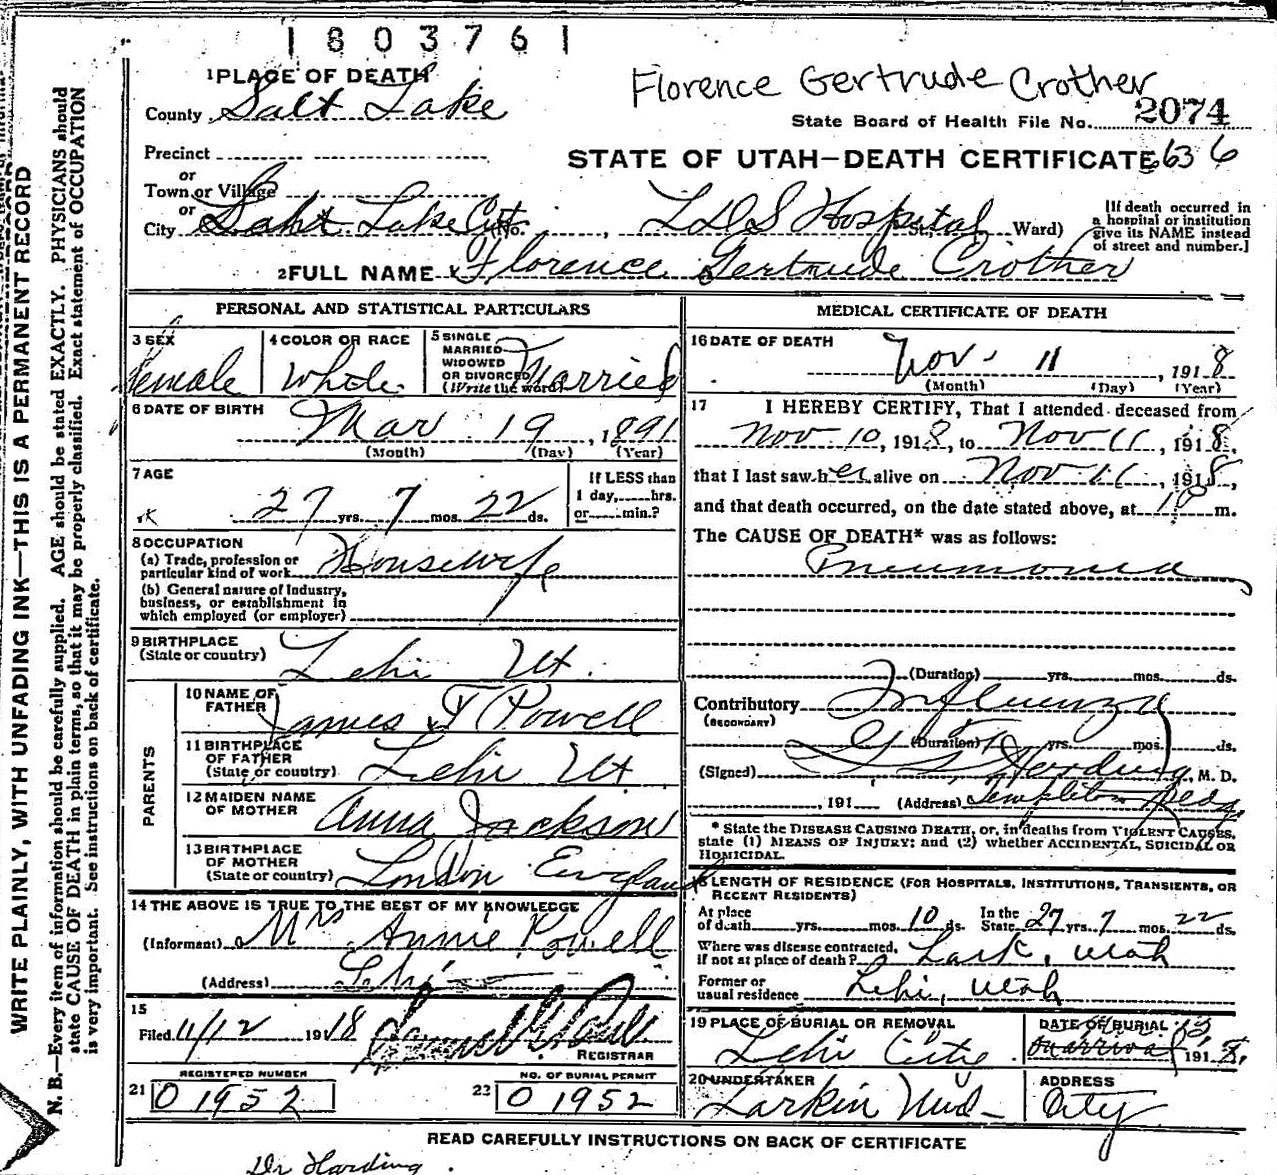 1803761
Florence Gertrude Crother
1 PLACE OF DEATH
County Salt Lake
State Board of Health File No. 2074
Precinct
or
STATE OF UTAH—DEATH CERTIFICATE 636
Town or Village
or
City Salt Lake City No. , LDS Hospital St., Ward)
[If death occurred in
a hospital or institution
give its NAME instead
of street and number.]
2 FULL NAME Florence Gertrude Crother
PERSONAL AND STATISTICAL PARTICULARS
3 SEX
female
4 COLOR OR RACE
White
5 SINGLE
MARRIED
WIDOWED
OR DIVORCED
(Write the word)
Married
6 DATE OF BIRTH
Mar 19, 1891
(Month) (Day) (Year)
7 AGE
27 yrs. 7 mos. 22 ds.
If LESS than
1 day, hrs.
or min.?
8 OCCUPATION
(a) Trade, profession or
particular kind of work Housewife
(b) General nature of industry,
business, or establishment in
which employed (or employer)
9 BIRTHPLACE
(State or country) Lehi Ut.
PARENTS
10 NAME OF
FATHER James T Powell
11 BIRTHPLACE
OF FATHER
(State or country) Lehi Ut
12 MAIDEN NAME
OF MOTHER Anna Jackson
13 BIRTHPLACE
OF MOTHER
(State or country) London England
14 THE ABOVE IS TRUE TO THE BEST OF MY KNOWLEDGE
(Informant) Mrs Annie Powell
(Address) Lehi
15
Filed 11/12 1918
REGISTRAR
REGISTERED NUMBER
21 01952
NO. OF BURIAL PERMIT
22 01952
MEDICAL CERTIFICATE OF DEATH
16 DATE OF DEATH
Nov. 11, 1918
(Month) (Day) (Year)
17 I HEREBY CERTIFY, That I attended deceased from
Nov 10, 1918, to Nov 11, 1918,
that I last saw her alive on Nov 11, 1918,
and that death occurred, on the date stated above, at m.
The CAUSE OF DEATH* was as follows:
Pneumonia
(Duration) yrs. mos. ds.
Contributory Influenza
(SECONDARY)
(Duration) yrs. mos. ds.
(Signed) Harding, M. D.
, 191 (Address) Templeton Bldg
* State the DISEASE CAUSING DEATH, or, in deaths from VIOLENT CAUSES,
state (1) MEANS OF INJURY; and (2) whether ACCIDENTAL, SUICIDAL OR
HOMICIDAL.
18 LENGTH OF RESIDENCE (FOR HOSPITALS, INSTITUTIONS, TRANSIENTS, OR
RECENT RESIDENTS)
At place
of death yrs. mos. 10 ds.
In the
State 27 yrs. 7 mos. 22 ds.
Where was disease contracted,
if not at place of death? Lark, Utah
Former or
usual residence Lehi, Utah
19 PLACE OF BURIAL OR REMOVAL
Lehi City
DATE OF BURIAL
13, 1918.
20 UNDERTAKER
Larkin Und
ADDRESS
City
READ CAREFULLY INSTRUCTIONS ON BACK OF CERTIFICATE
Dr Harding
WRITE PLAINLY, WITH UNFADING INK—THIS IS A PERMANENT RECORD
N. B.—Every item of information should be carefully supplied. AGE should be stated EXACTLY. PHYSICIANS should
state CAUSE OF DEATH in plain terms, so that it may be properly classified. Exact statement of OCCUPATION
is very important. See instructions on back of certificate.